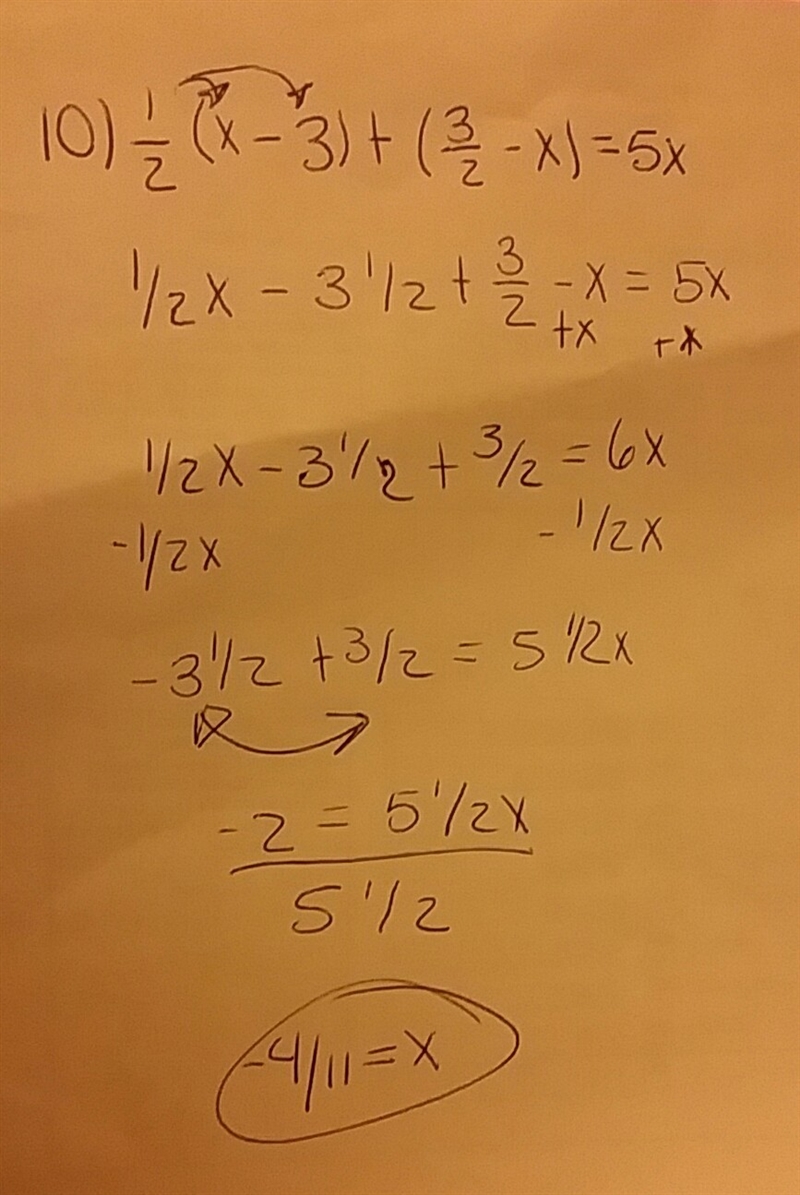 10) 1/2 (x - 3) + (3/2 - x) = 5x
1/2 x - 3 1/2 + 3/2 - x = 5x
+x +x
1/2 x - 3 1/2 + 3/2 = 6x
-1/2 x - 1/2 x
-3 1/2 + 3/2 = 5 1/2 x
-2 = 5 1/2 x
5 1/2
-4/11 = x